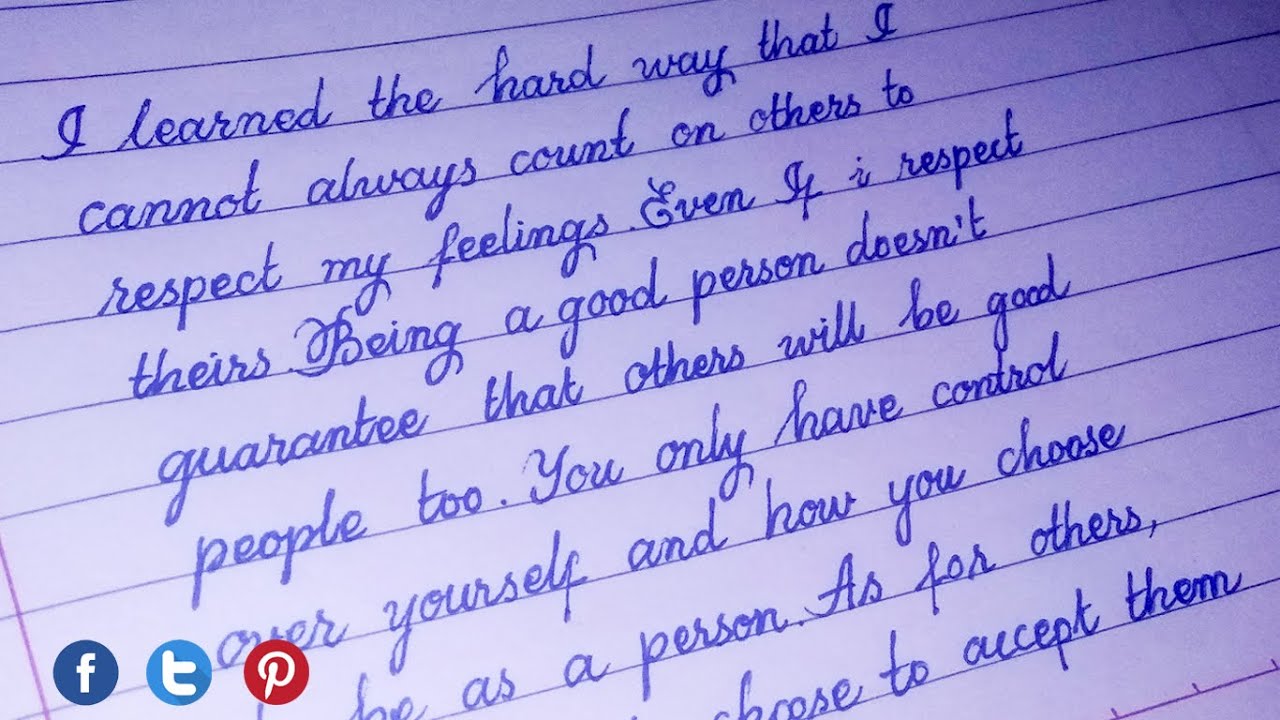 I learned the hard way that I
cannot always count on others to
respect my feelings. Even If i respect
theirs. Being a good person doesn't
guarantee that others will be good
people too. You only have control
over yourself and how you choose
be as a person. As for others,
to accept them